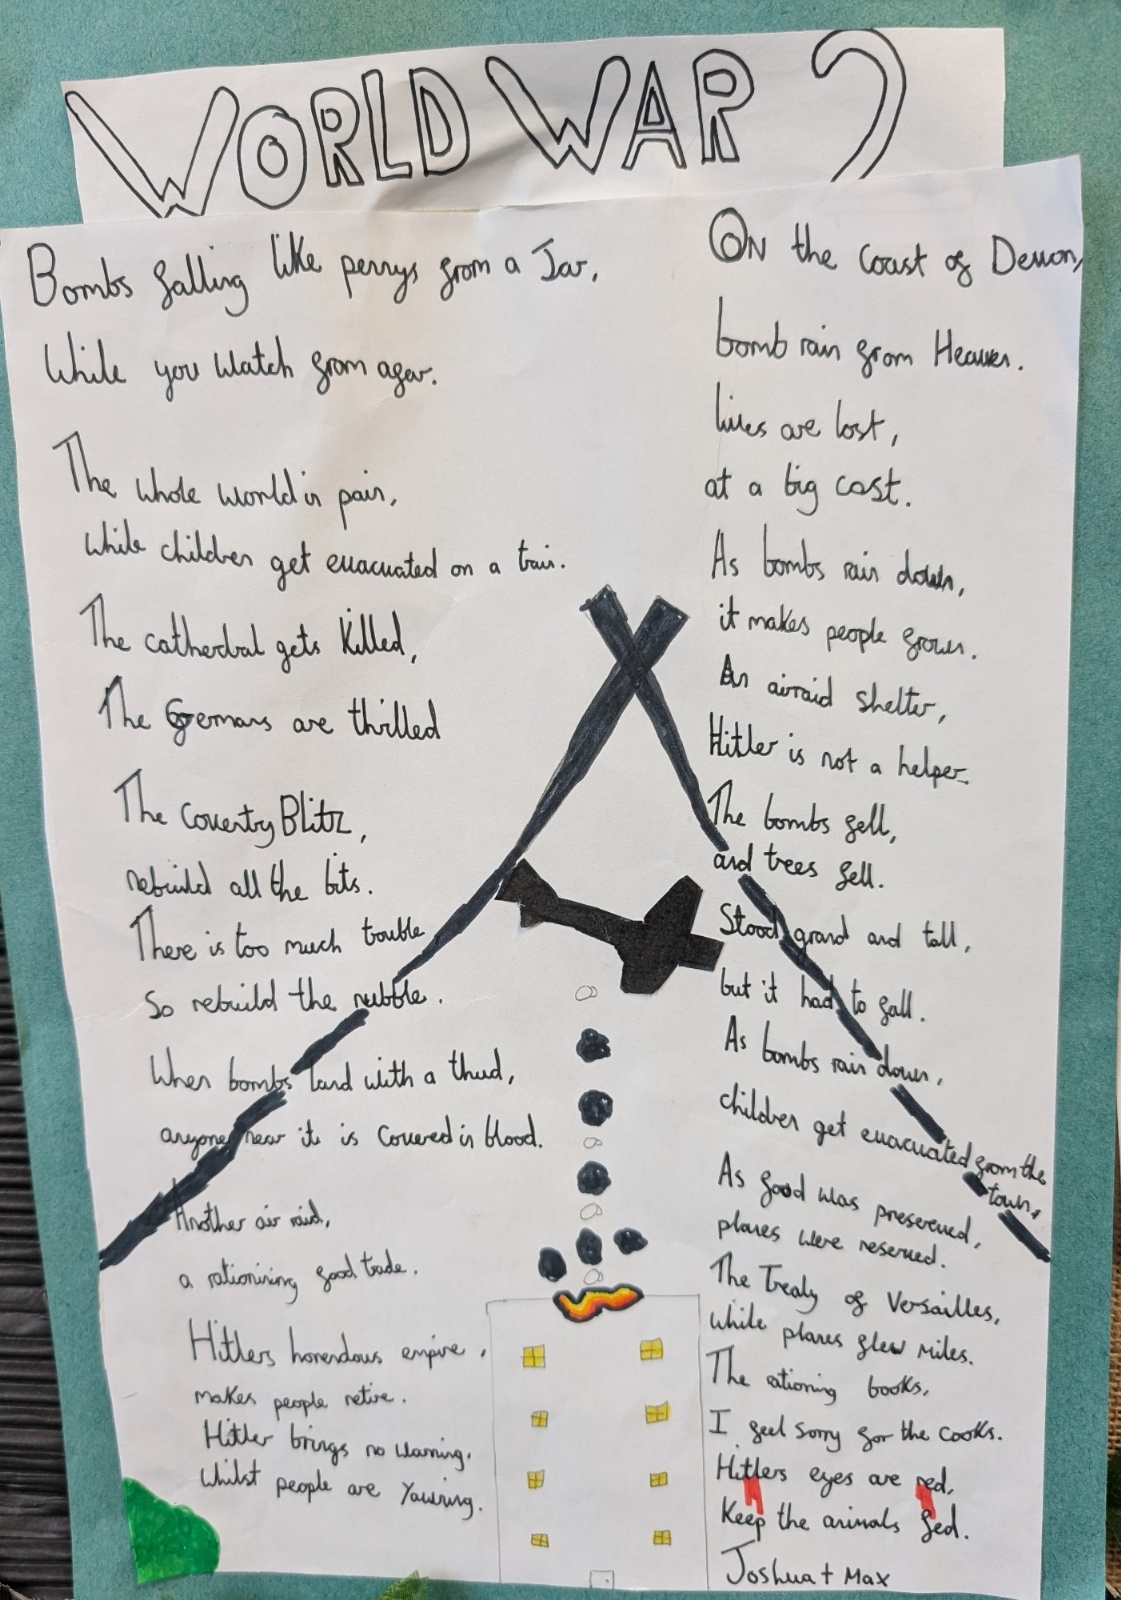 WORLD WAR 2
Bombs falling like pennys from a Jar,
While you watch from afar.
The whole world in pain,
while children get evacuated on a train.
The catherdral gets killed,
The Germans are thrilled
The Coventry Blitz,
rebuild all the bits.
There is too much trouble
So rebuild the rubble.
When bombs land with a thud,
anyone near it is covered in blood.
Another air raid,
a rationining food trade.
Hitlers horrendous empire,
makes people retire.
Hitler brings no warning,
whilst people are Yawning.
ON the coast of Devon,
bomb rain from Heaven.
lives are lost,
at a big cost.
As bombs rain down,
it makes people frown.
An airraid shelter,
Hitler is not a helper.
The bombs fell,
and trees fell.
Stood grand and tall,
but it had to fall.
As bombs rain down,
children get evacuated from the
town.
As food was preserved,
planes were reserved.
The Treaty of Versailles,
while planes flew miles.
The rationing books,
I feel sorry for the cooks.
Hitlers eyes are red,
Keep the animals fed.
Joshua + Max